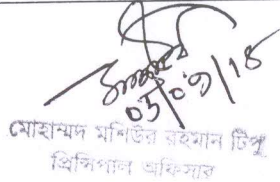 ০১/০৭/১৪
মোহাম্মদ মশিউর রহমান টিপু
প্রিন্সিপাল অফিসার